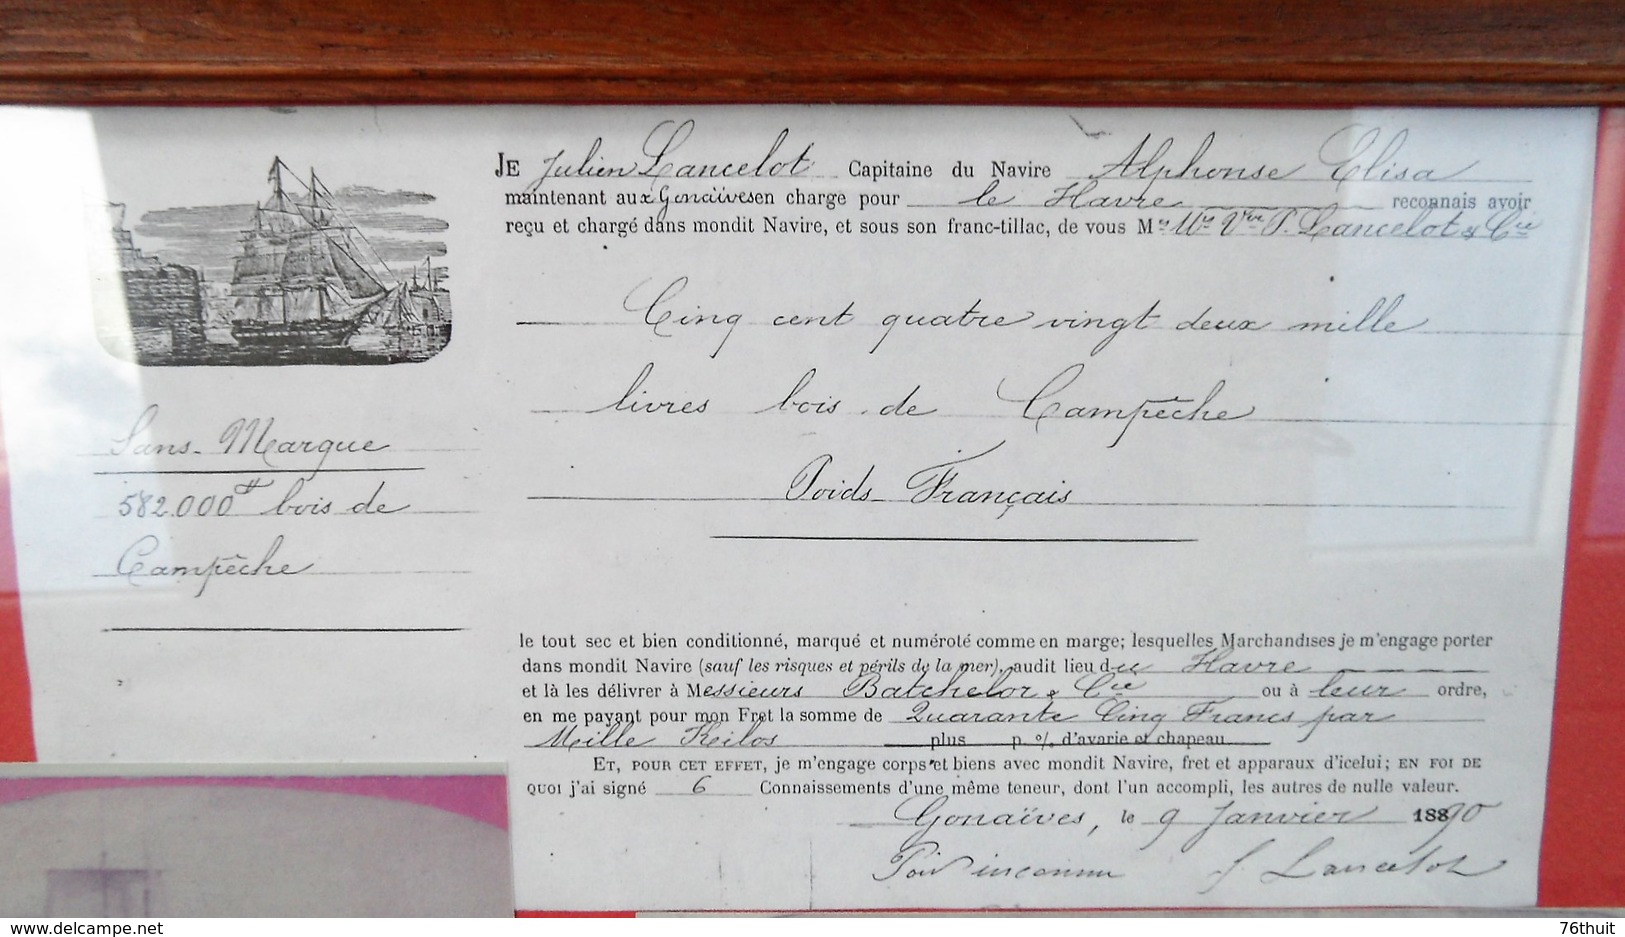 JE Julien Lancelot Capitaine du Navire Alphonse Elisa
maintenant aux Gonaïves en charge pour le Havre reconnais avoir
reçu et chargé dans mondit Navire, et sous son franc-tillac, de vous Mrs Vve P. Lancelot & Cie
Cinq cent quatre vingt deux mille
livres bois de Campêche
Poids Français
Sans Marque
582.000 bois de
Campêche
le tout sec et bien conditionné, marqué et numéroté comme en marge; lesquelles Marchandises je m'engage porter
dans mondit Navire (sauf les risques et périls de la mer), audit lieu du Havre
et là les délivrer à Messieurs Batchelor & Cie ou à leur ordre,
en me payant pour mon Fret la somme de Quarante Cinq Francs par
Mille Kilos plus p. % d'avarie et chapeau
ET, POUR CET EFFET, je m'engage corps et biens avec mondit Navire, fret et apparaux d'icelui; EN FOI DE
QUOI j'ai signé 6 Connaissements d'une même teneur, dont l'un accompli, les autres de nulle valeur.
Gonaïves, le 9 Janvier 1890
Poids inconnu J Lancelot
delcampe.net
76thuit